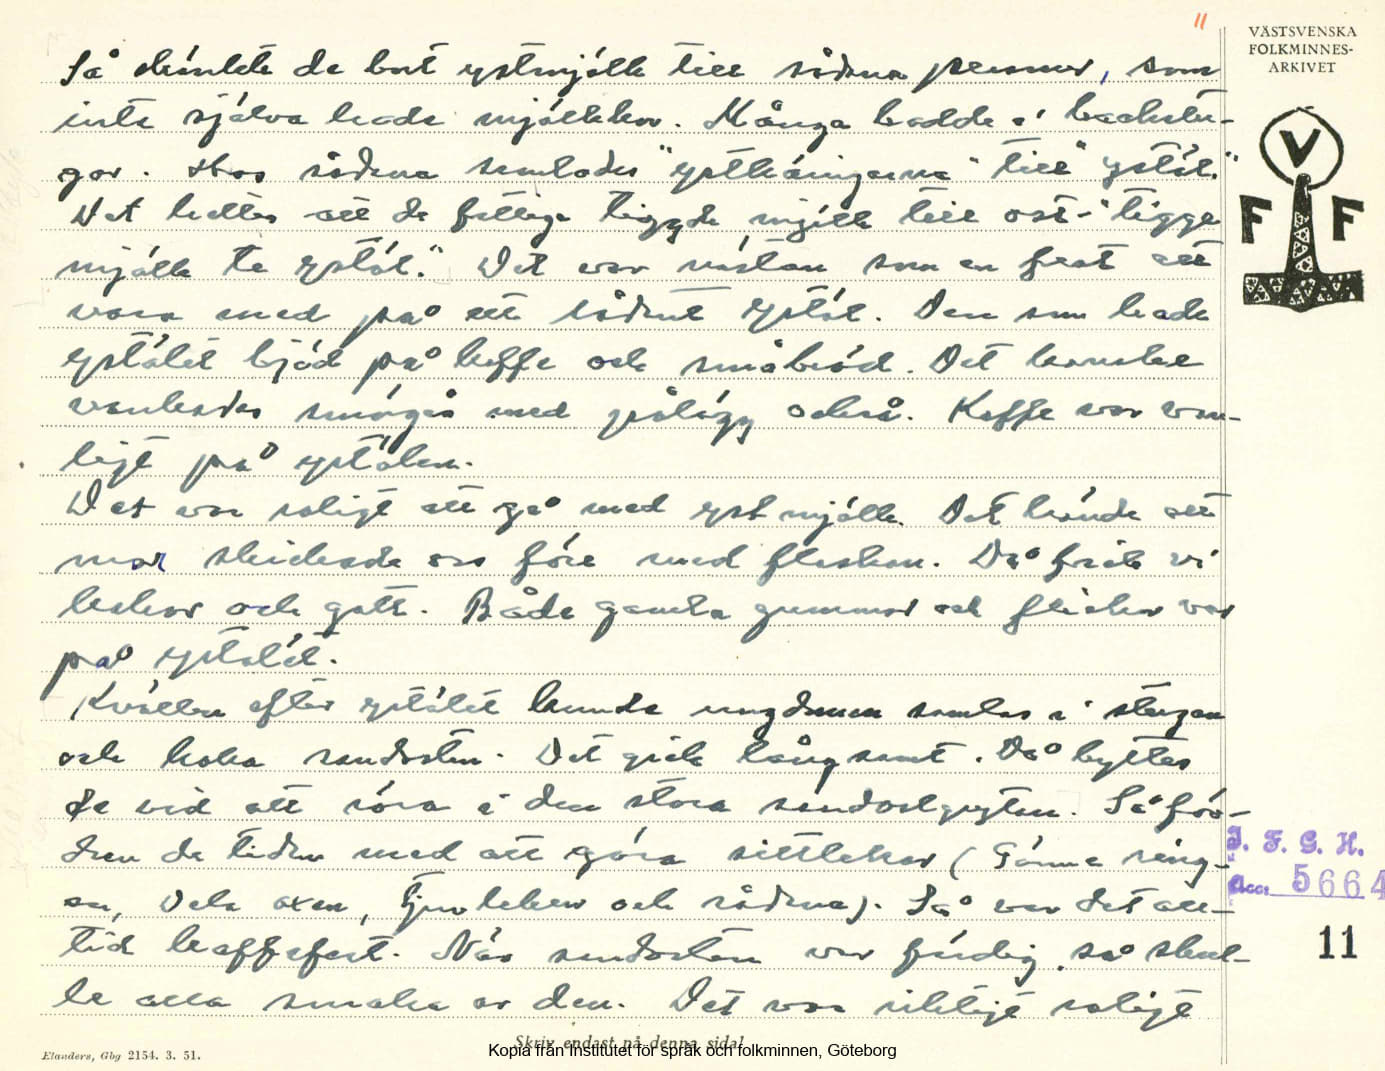 11
VÄSTSVENSKA
FOLKMINNES-
ARKIVET
V
F F
Så skänkte de bort ystmjölk till sådana personer, som
inte själva hade mjölkkor. Många bodde i backstu-
gor. Hos sådana samlades "ystkäringarna" till "ystöl."
Det hettes att de fattiga tiggde mjölk till ost - "tigge
mjölk te ystöl." Det var nästan som en fest att
vara med på ett sådant ystöl. Den som hade
ystölet bjöd på kaffe och småbröd. Det kanske
vankades smörgås med pålägg också. Kaffe var van-
ligt på ystölen.
Det var roligt att gå med ystmjölk. Det hände att
mor skickade oss före med flaskan. Då fick vi
kakor och gott. Både gamla gummor och flickor var
på ystölet.
Kvällen efter ystölet kunde ungdomen samlas i stugan
och koka sandosten. Det gick långsamt. Då byttes
de vid att röra i den stora sandostgrytan. Så för-
drev de tiden med att göra sittlekar (Gömma ring-
en, Dela axen, Tjuvleken och sådana). Så var det all-
tid kaffefest. När sandosten var färdig, så skul-
le alla smaka av den. Det var riktigt roligt
I. F. G. H.
Acc. 5664
11
Skriv endast på denna sida!
Elanders, Gbg 2154. 3. 51.
Kopia från Institutet för språk och folkminnen, Göteborg